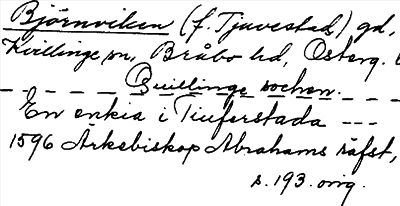 Björnviken (f. Tjuvestad) gd,
Kvillinge sn, Bråbo hd, Österg.
Quillinge sochen.
En enkia i Tiuferstada ---
1596 Ärkebiskop Abrahams räfst,
s. 193. orig.